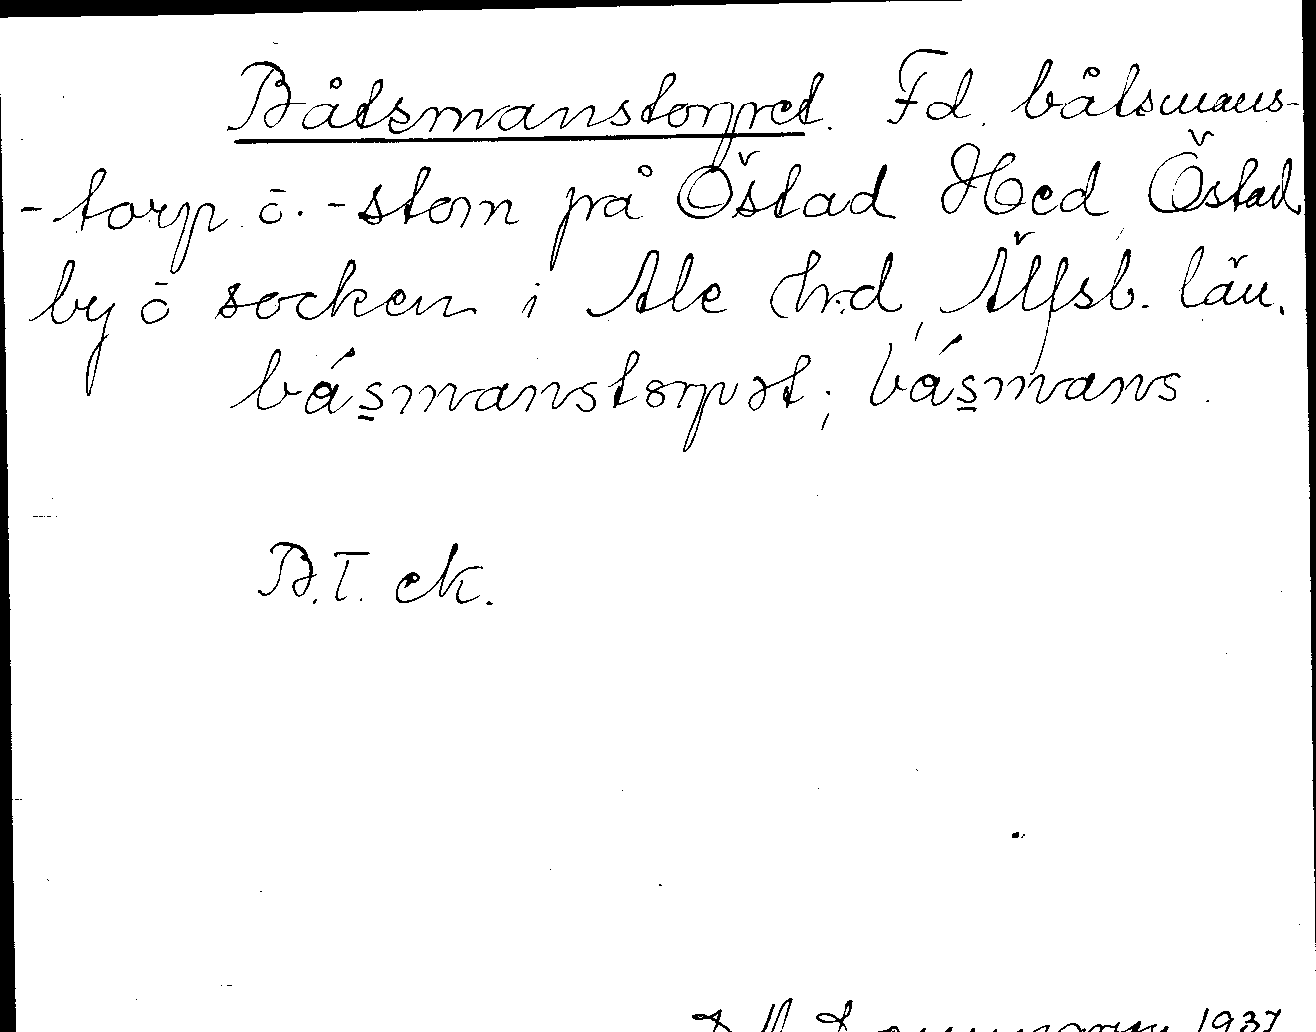 Båtsmanstorpet. Fd. båtsmans-
-torp ō. -stom på Östad Hed, Östad
by ō socken i Ale hrd, Älfsb. län.
bá̊s̲manstorpət; bá̊s̲mans.
B.T. ek.
1937